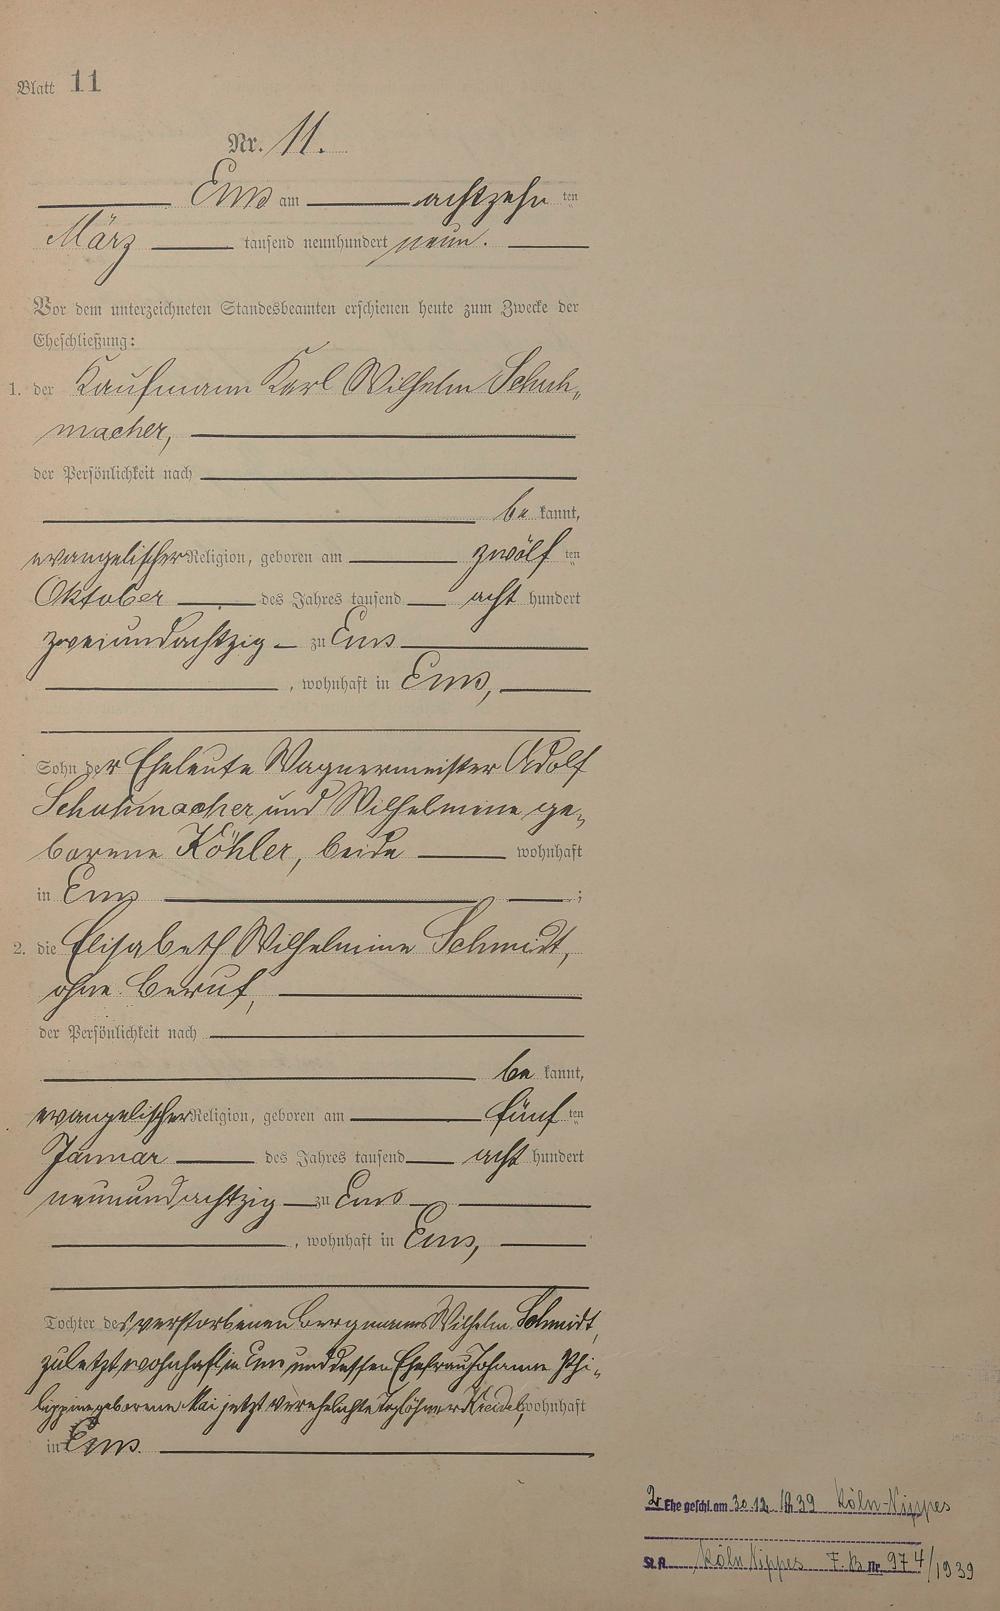 Blatt 11
Nr. 11.
Ems am achtzehn ten
März tausend neunhundert neun.
Vor dem unterzeichneten Standesbeamten erschienen heute zum Zwecke der
Eheschließung:
1. der Kaufmann Karl Wilhelm Schuh„
macher,
der Persönlichkeit nach
be kannt,
evangelischer Religion, geboren am zwölf ten
Oktober des Jahres tausend acht hundert
zweiundachtzig zu Ems
, wohnhaft in Ems,
Sohn der Eheleute Wagnermeister Adolf
Schuhmacher und Wilhelmine ge„
borene Köhler, beide wohnhaft
in Ems ;
2. die Elisabeth Wilhelmine Schmidt,
ohne Beruf,
der Persönlichkeit nach
be kannt,
evangelischer Religion, geboren am fünf ten
Januar des Jahres tausend acht hundert
neunundachtzig zu Ems
, wohnhaft in Ems,
Tochter des verstorbenen Bergmanns Wilhelm Schmidt,
zuletzt wohnhaft in Ems und dessen Ehefrau Johanne Phi„
lippine geborene Mai jetzt verehelichte Taglöhner Kreidel, wohnhaft
in Ems.
2. Ehe geschl. am 30.12.1939 Köln-Nippes
St. A. Köln Nippes F. B. Nr. 974/1939